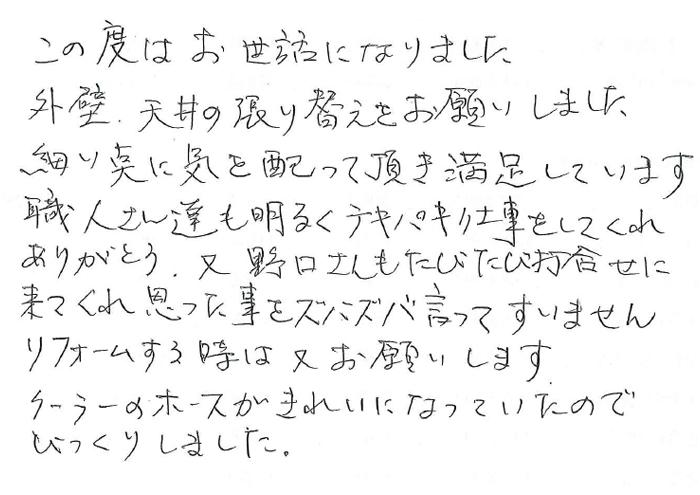 この度はお世話になりました
外壁、天井の張り替えをお願いしました、
細い点に気を配って頂き満足しています
職人さん達も明るくテキパキ仕事をしてくれ
ありがとう、又野口さんもたびたび打合せに
来てくれ思った事をズバズバ言ってすいません
リフォームする時は又お願いします
クーラーのホースがきれいになっていたので
びっくりしました。